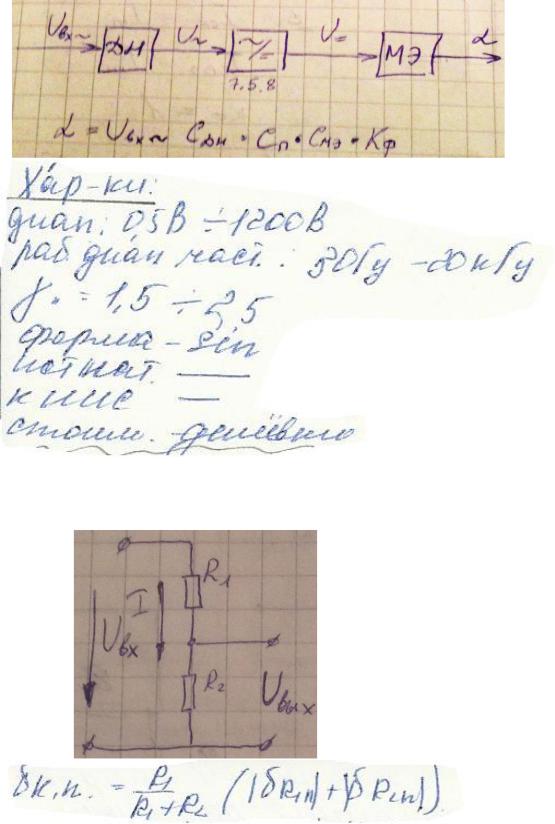 Uвх~ ДН U~ ~/= U= МЭ α
7.5.8
α = Uвх~ Cдн · Cп · Cмэ · Kф
Хар-ки:
диап: 05В ÷ 1200В
раб. диап част.: 50Гц – 20кГц
γ. = 1,5 ÷ 2,5
форма – sin
—
—
стоим. дешёвые
R1
I
Uвх
R2
Uвых
δк.п. = R1/(R1+R2) (|δR1п|+|δR2п|)